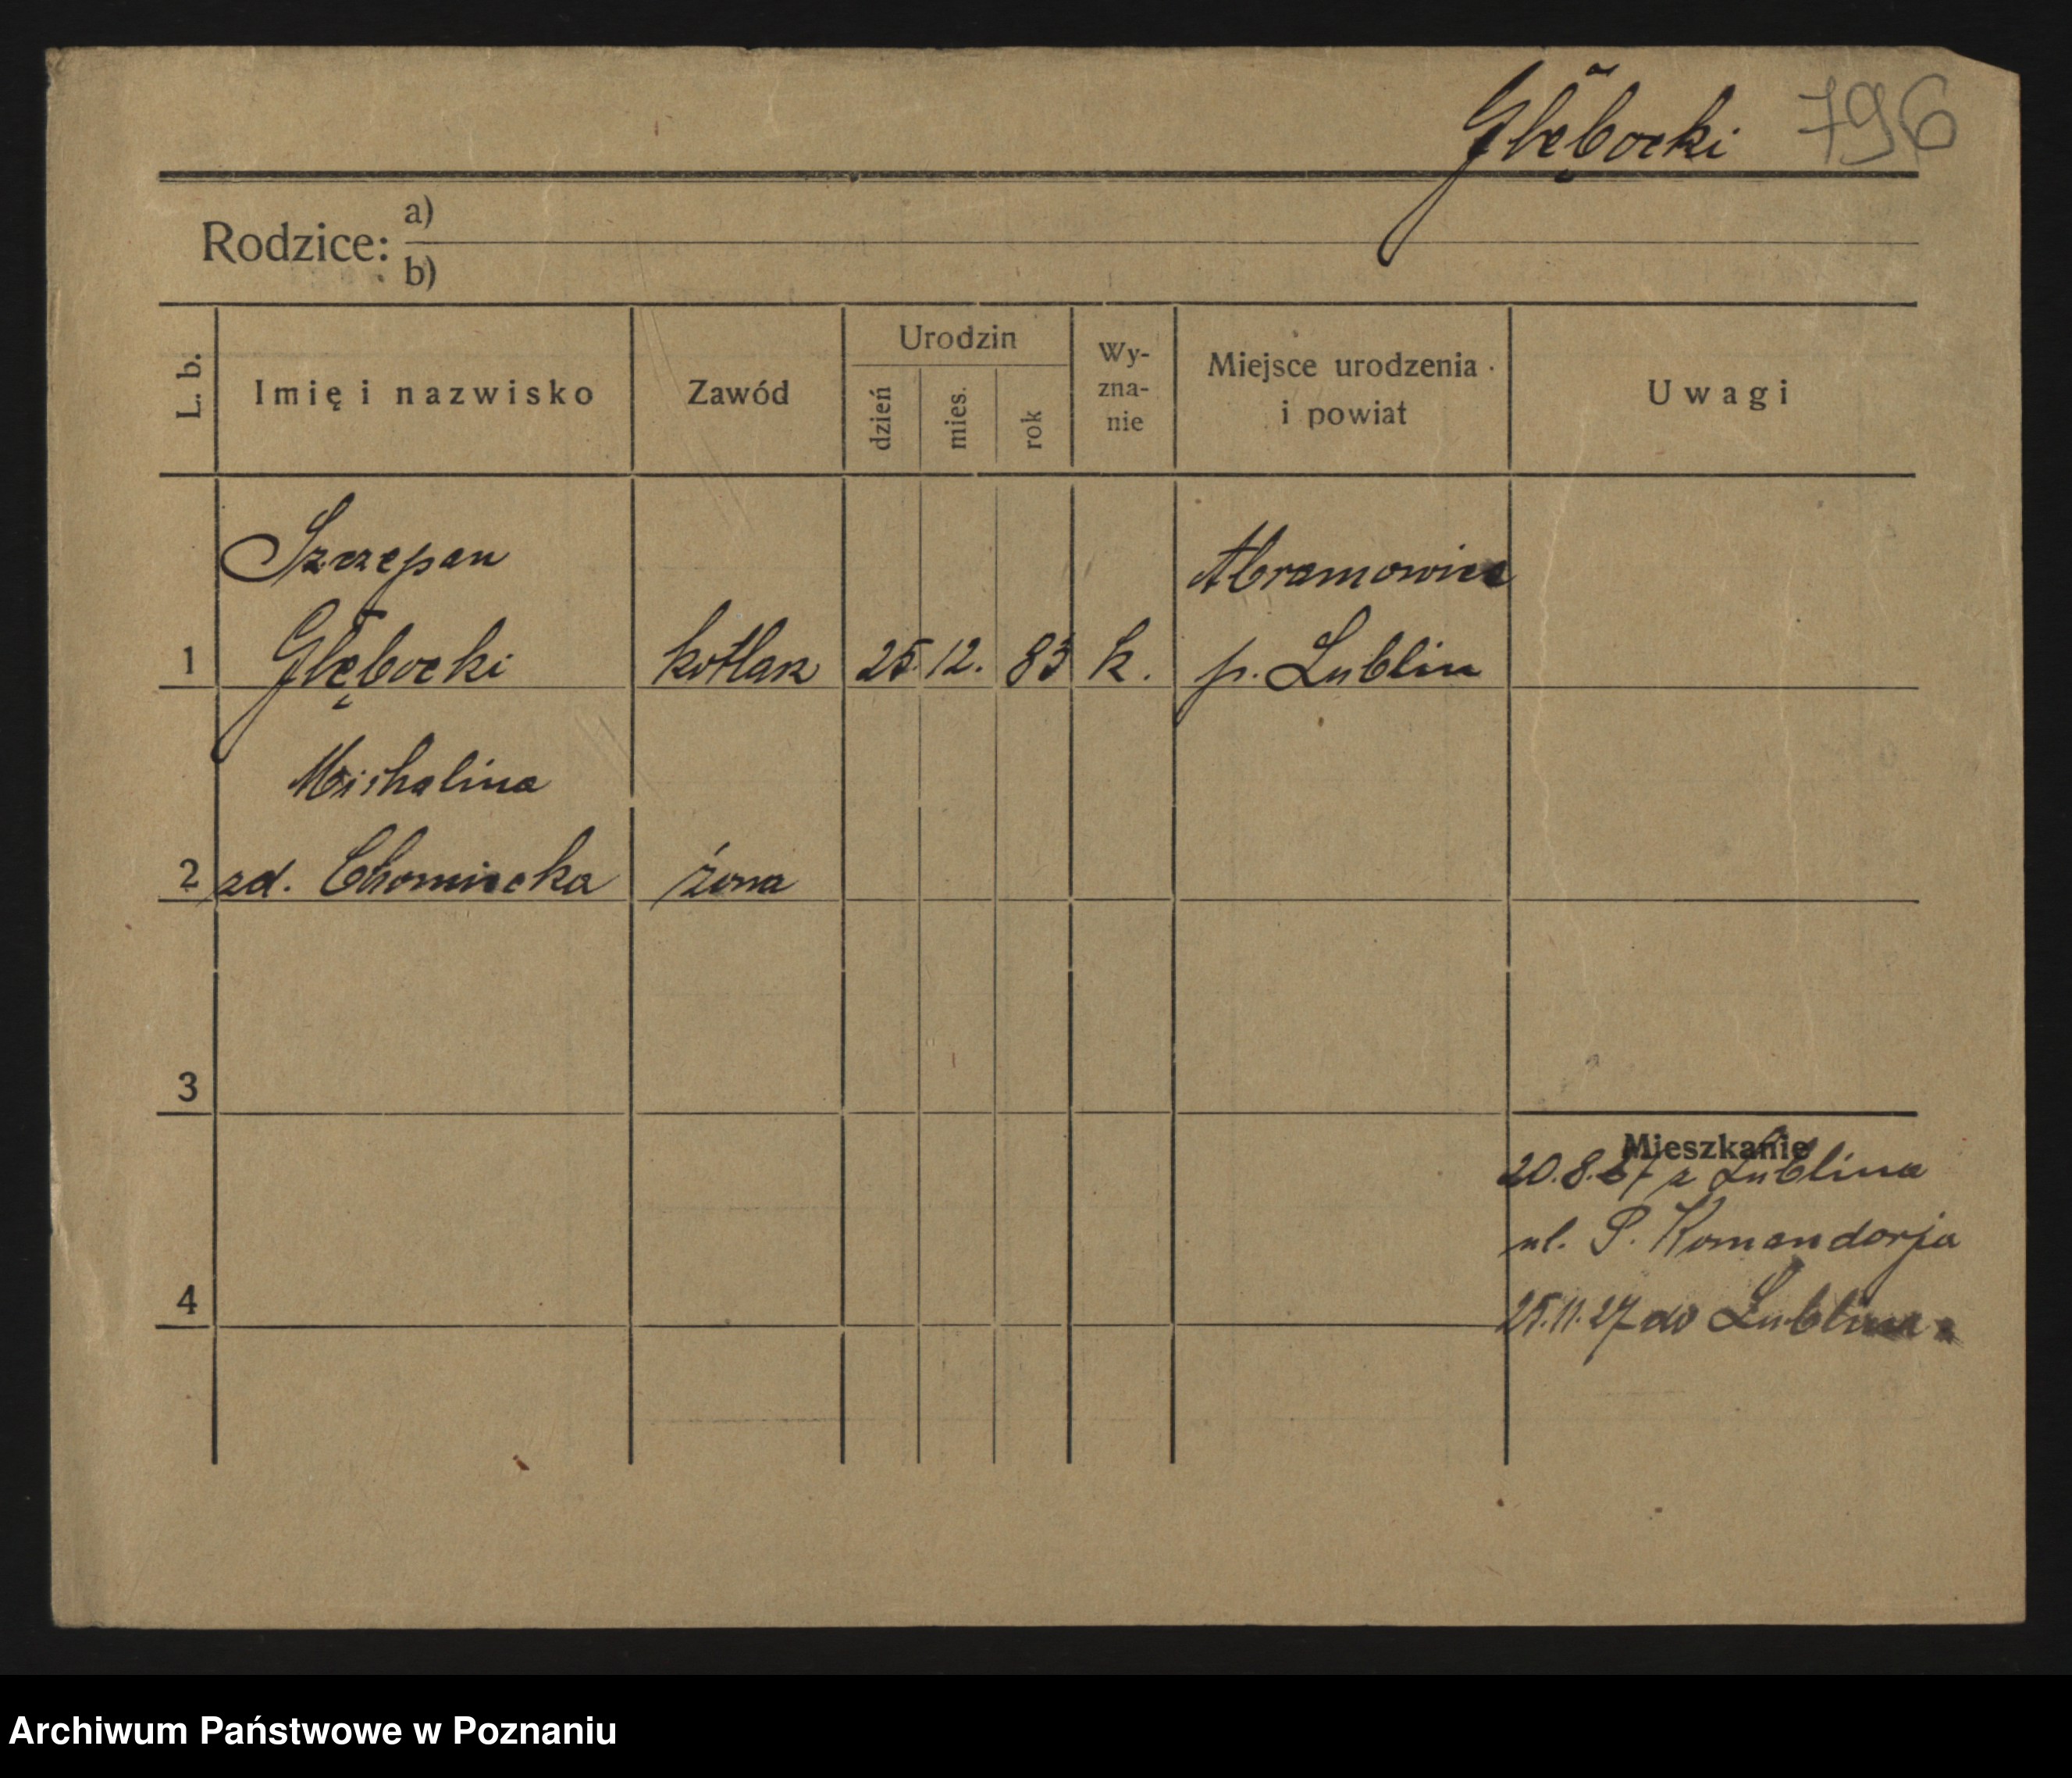 Głębocki 796
Rodzice: a)
b)
L. b.
Imię i nazwisko
Zawód
Urodzin
dzień
mies.
rok
Wy-
zna-
nie
Miejsce urodzenia
i powiat
Uwagi
Szczepan
Abramowice
1 Głębocki kotlarz 25. 12. 83 k. p. Lublin
Michalina
2 zd. Chomicka żona
3
Mieszkanie
20.8.27 z Lublina
ul. P. Komandorja
4
25.11.27 do Lublina
Archiwum Państwowe w Poznaniu